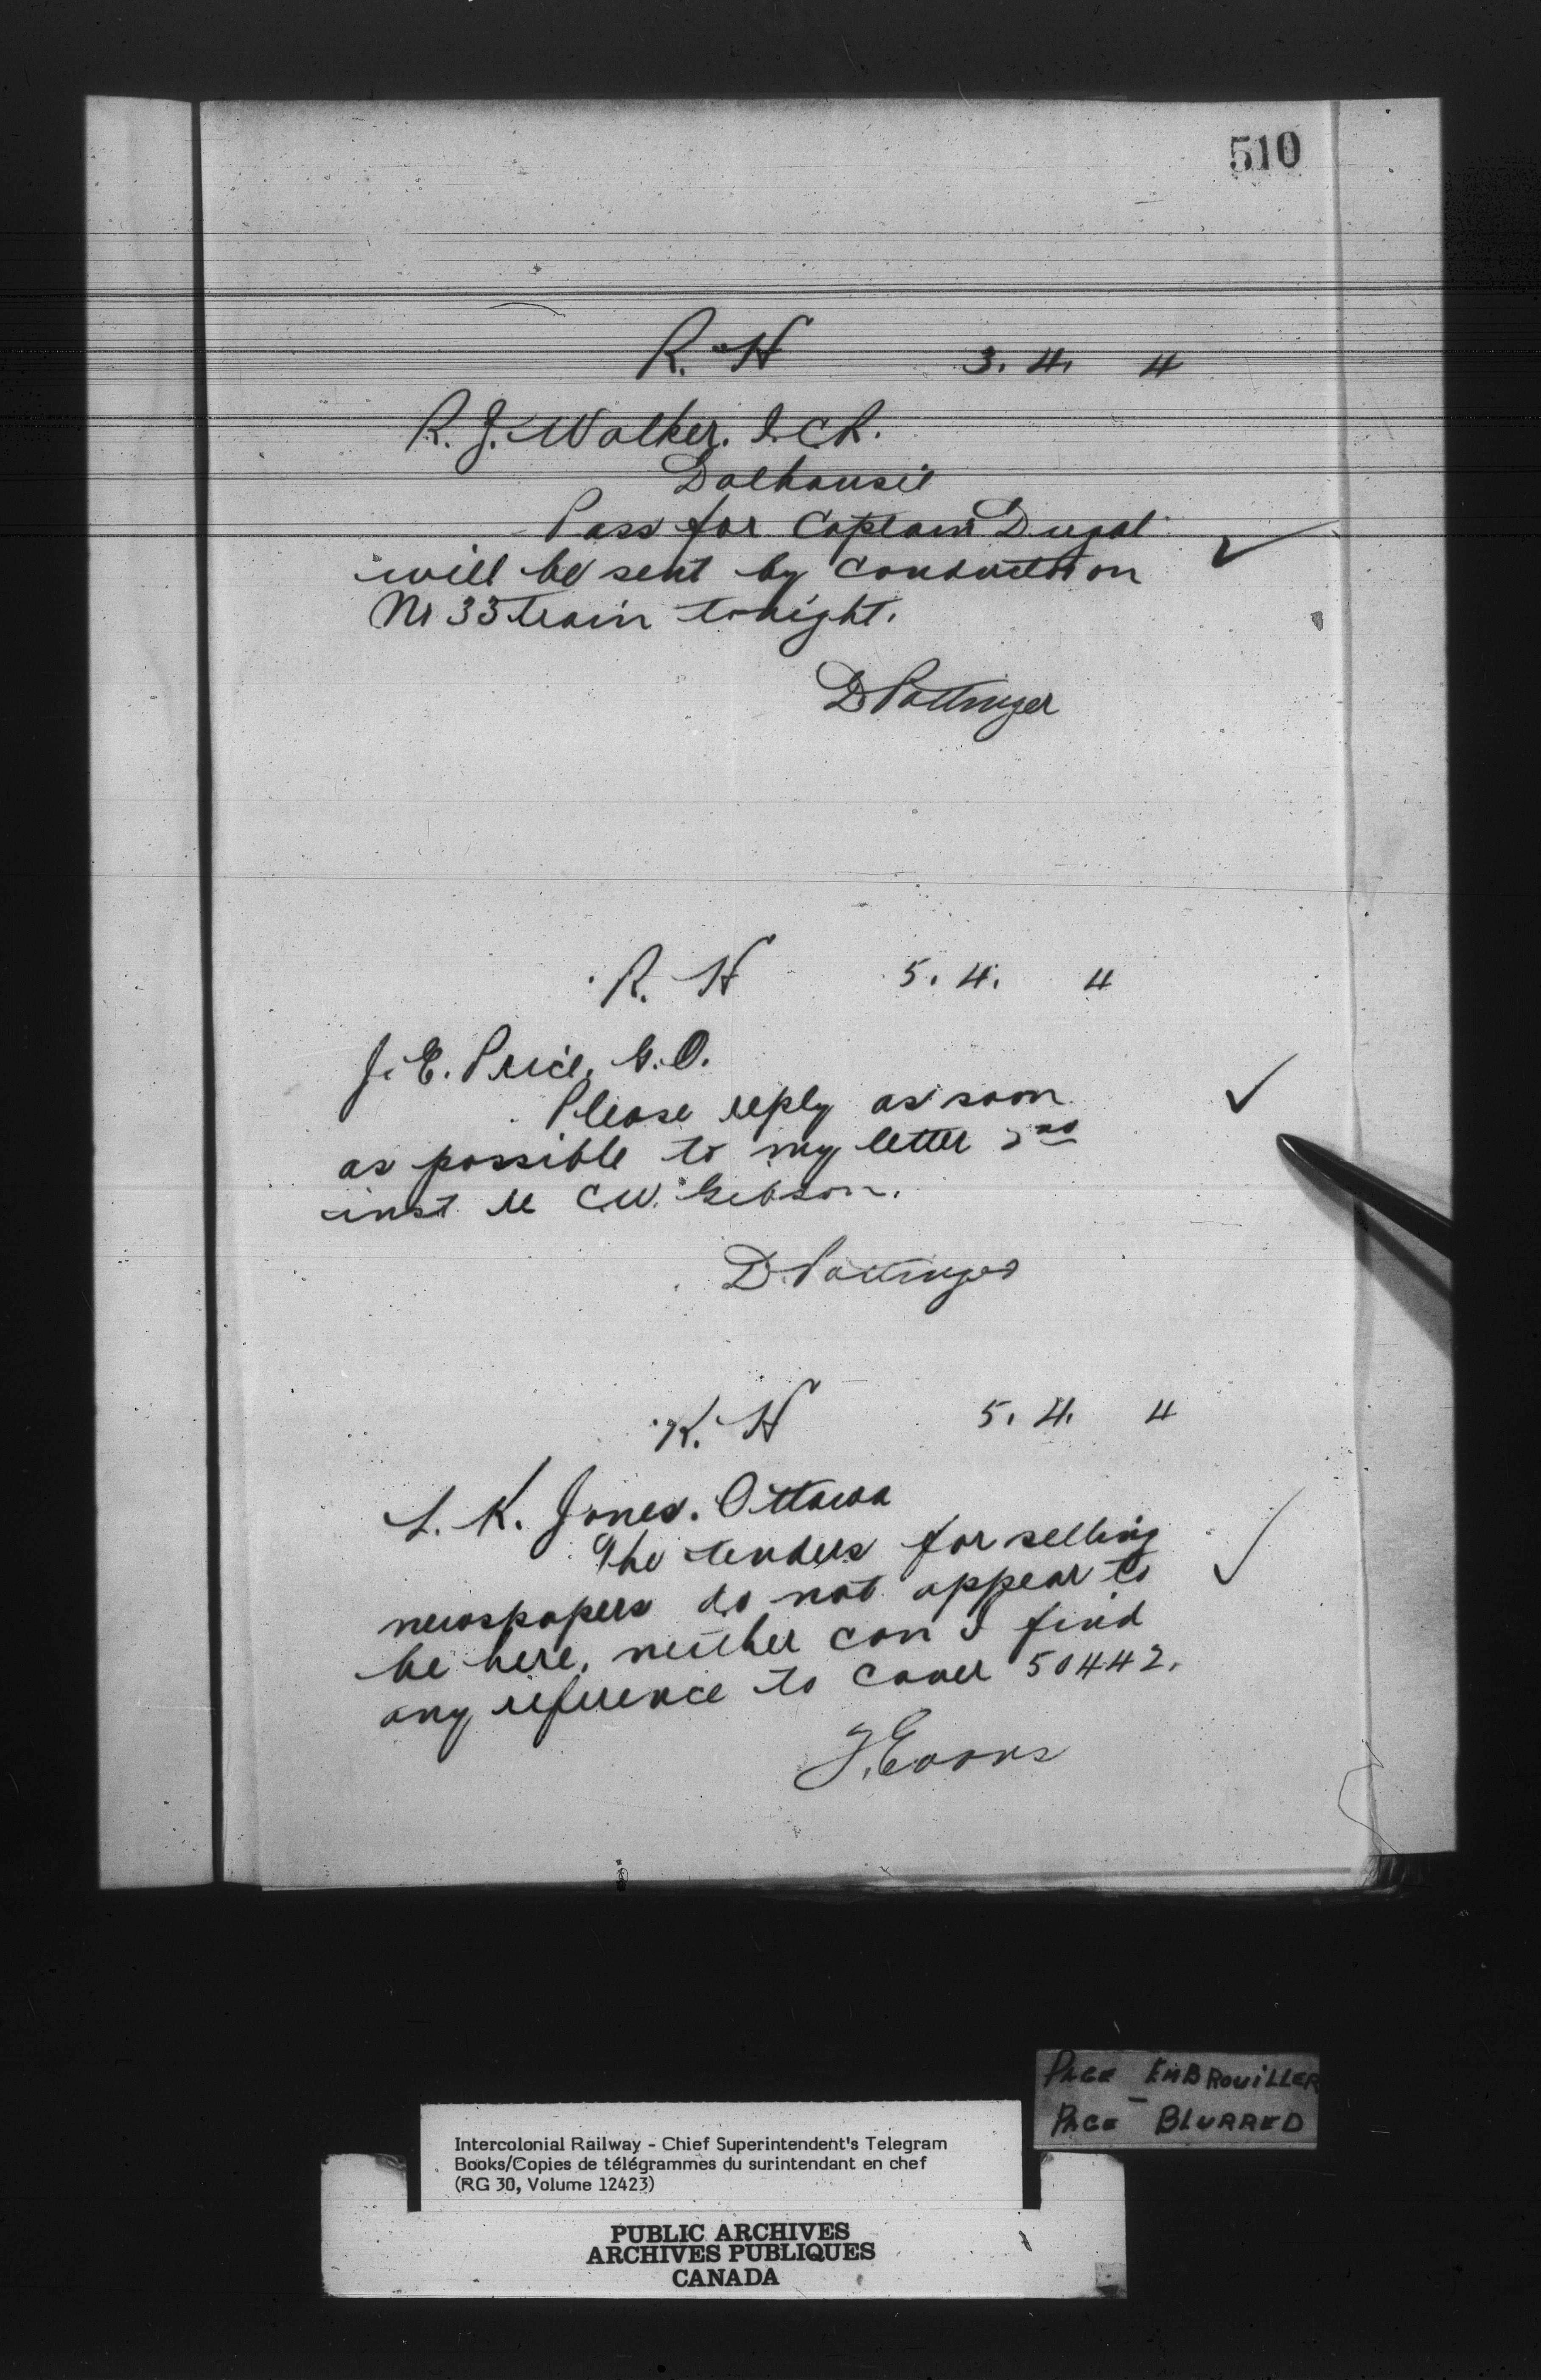 510
R. H 3. 4. 4
R. J. Walker. I.C.R.
Dalhousie
Pass for Captain Dugal
will be sent by conductor on
No 33 train tonight.
D Pottinger
R. H 5. 4. 4
J. E. Price, G.O.
Please reply as soon
as possible to my letter 2nd
inst re C.W. Gibson.
D. Pottinger
R. H 5. 4. 4
L. K. Jones. Ottawa
The tenders for selling
newspapers do not appear to
be here, neither can I find
any reference to cover 50442.
T. Evans
PAGE EMBROUILLER
PAGE BLURRED
Intercolonial Railway - Chief Superintendent's Telegram
Books/Copies de télégrammes du surintendant en chef
(RG 30, Volume 12423)
PUBLIC ARCHIVES
ARCHIVES PUBLIQUES
CANADA